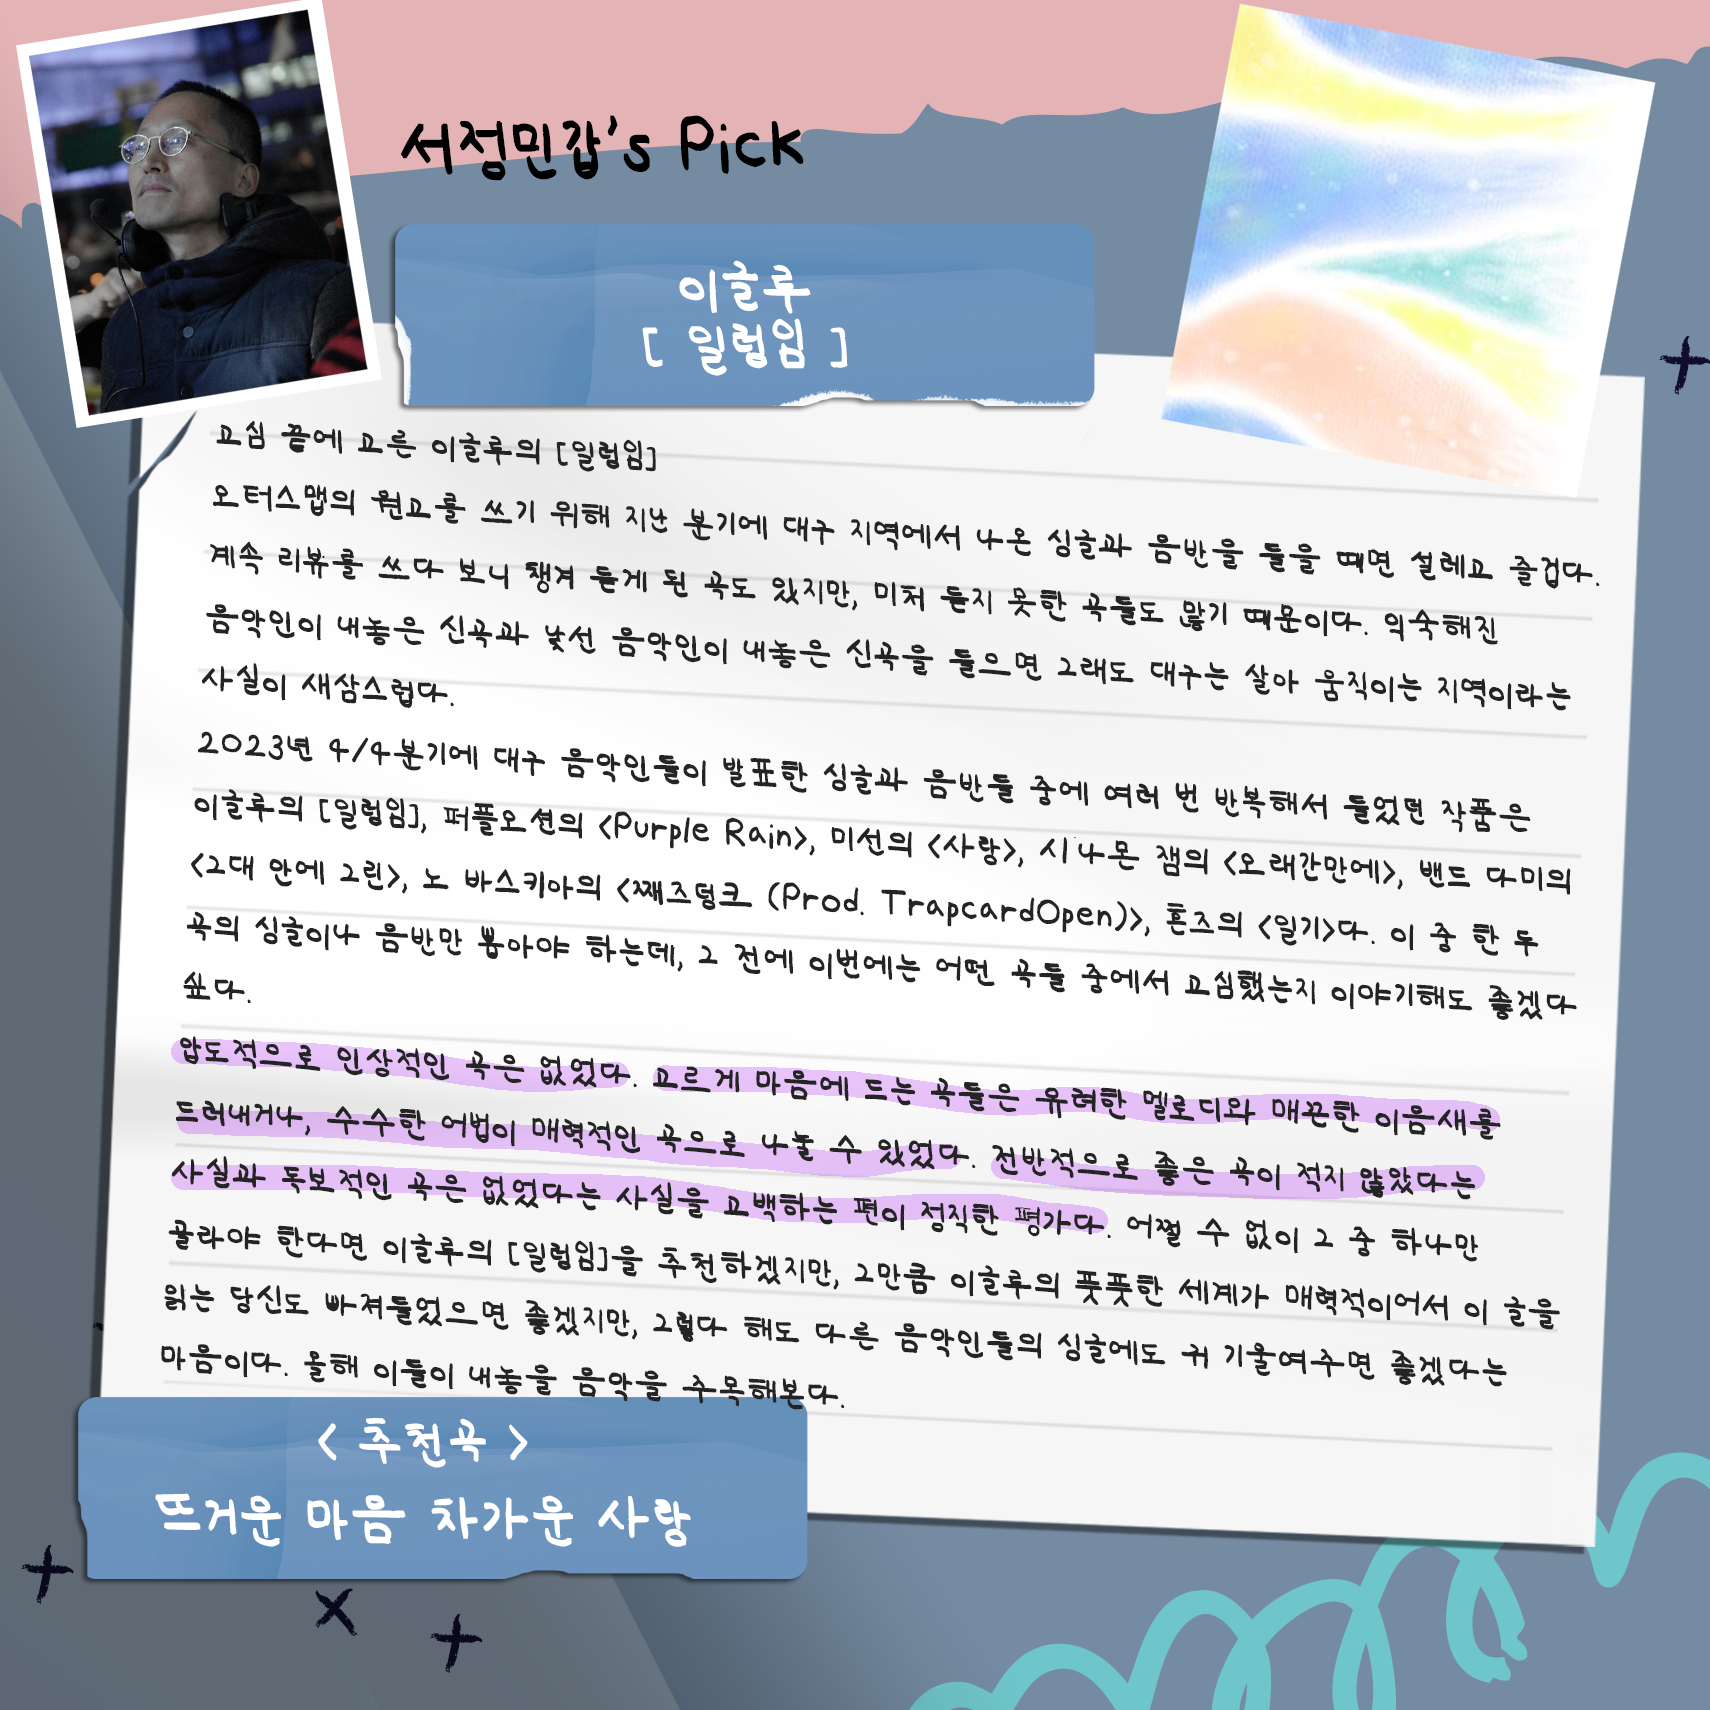 서정민갑's Pick
이글루
[ 일렁임 ]
고심 끝에 고른 이글루의 [일렁임]
오터스맵의 원고를 쓰기 위해 지난 분기에 대구 지역에서 나온 싱글과 음반을 들을 때면 설레고 즐겁다.
계속 리뷰를 쓰다 보니 챙겨 듣게 된 곡도 있지만, 미처 듣지 못한 곡들도 많기 때문이다. 익숙해진
음악인이 내놓은 신곡과 낯선 음악인이 내놓은 신곡을 들으면 그래도 대구는 살아 움직이는 지역이라는
사실이 새삼스럽다.
2023년 4/4분기에 대구 음악인들이 발표한 싱글과 음반들 중에 여러 번 반복해서 들었던 작품은
이글루의 [일렁임], 퍼플오션의 <Purple Rain>, 미선의 <사랑>, 시나몬 잼의 <오래간만에>, 밴드 다미의
<그대 안에 그린>, 노 바스키아의 <째즈덩크 (Prod. TrapcardOpen)>, 혼즈의 <일기>다. 이 중 한 두
곡의 싱글이나 음반만 뽑아야 하는데, 그 전에 이번에는 어떤 곡들 중에서 고심했는지 이야기해도 좋겠다
싶다.
압도적으로 인상적인 곡은 없었다. 고르게 마음에 드는 곡들은 유려한 멜로디와 매끈한 이음새를
드러내거나, 수수한 어법이 매력적인 곡으로 나눌 수 있었다. 전반적으로 좋은 곡이 적지 않았다는
사실과 독보적인 곡은 없었다는 사실을 고백하는 편이 정직한 평가다. 어쩔 수 없이 그 중 하나만
골라야 한다면 이글루의 [일렁임]을 추천하겠지만, 그만큼 이글루의 풋풋한 세계가 매력적이어서 이 글을
읽는 당신도 빠져들었으면 좋겠지만, 그렇다 해도 다른 음악인들의 싱글에도 귀 기울여주면 좋겠다는
마음이다. 올해 이들이 내놓을 음악을 주목해본다.
< 추천곡 >
뜨거운 마음 차가운 사랑